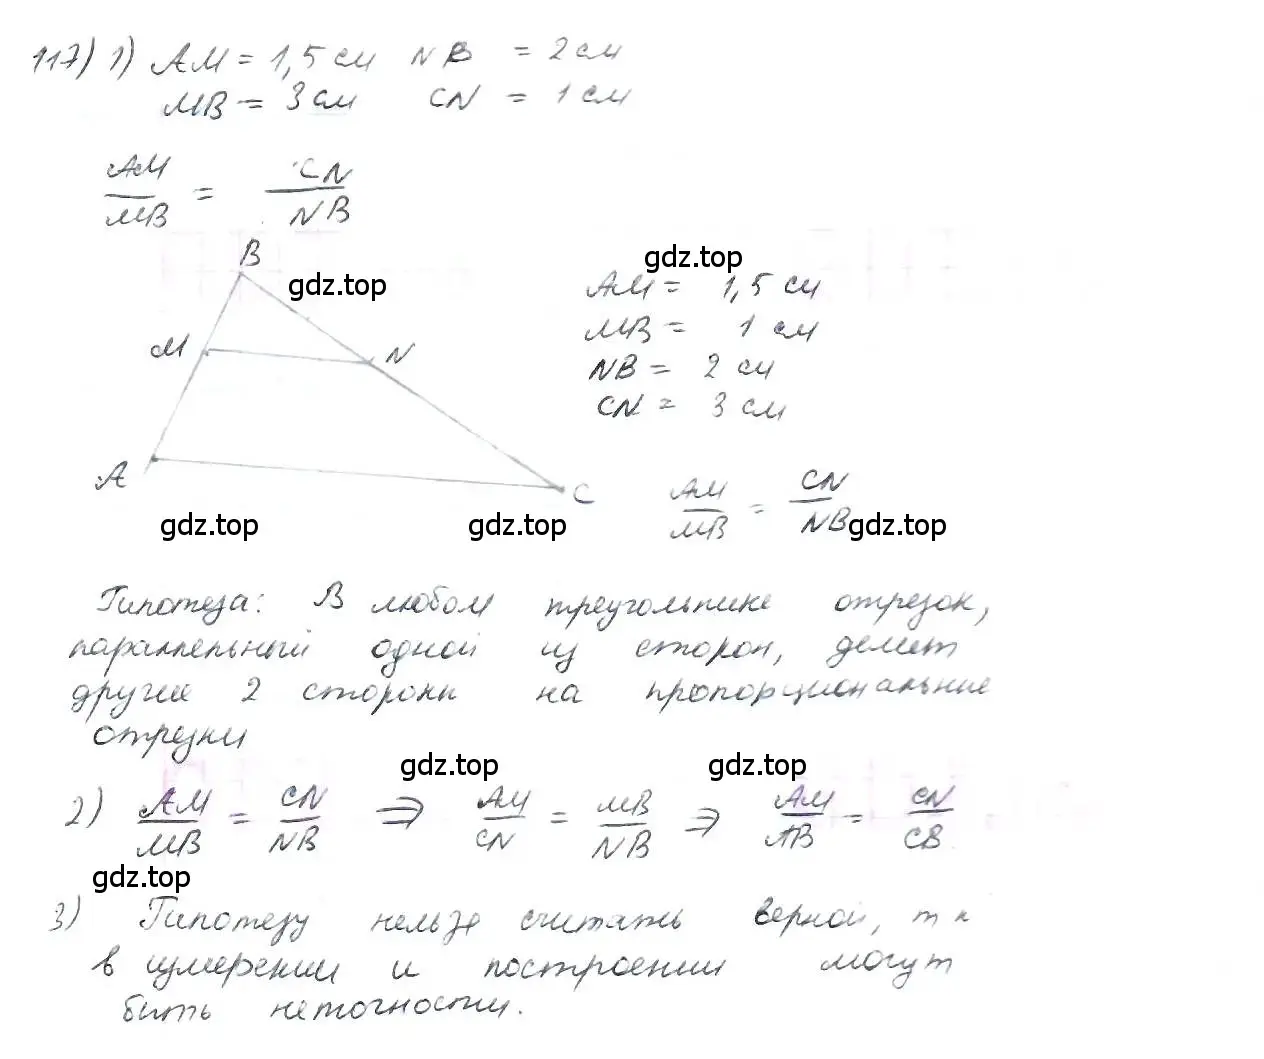 117) 1) AM = 1,5 см NB = 2 см
MB = 3 см CN = 1 см
AM/MB = CN/NB
B
gdz.top
gdz.top
AM = 1,5 см
MB = 1 см
M
N
NB = 2 см
CN = 3 см
A
C
AM/MB = CN/NB
gdz.top
gdz.top
gdz.top
Гипотеза: В любом треугольнике отрезок,
параллельный одной из сторон, делит
другие 2 стороны на пропорциональные
отрезки
gdz.top
gdz.top
2) AM/MB = CN/NB ⇒ AM/CN = MB/NB ⇒ AM/AB = CN/CB
gdz.top
3) Гипотезу нельзя считать верной, т к
в измерении и построении могут
быть неточности.